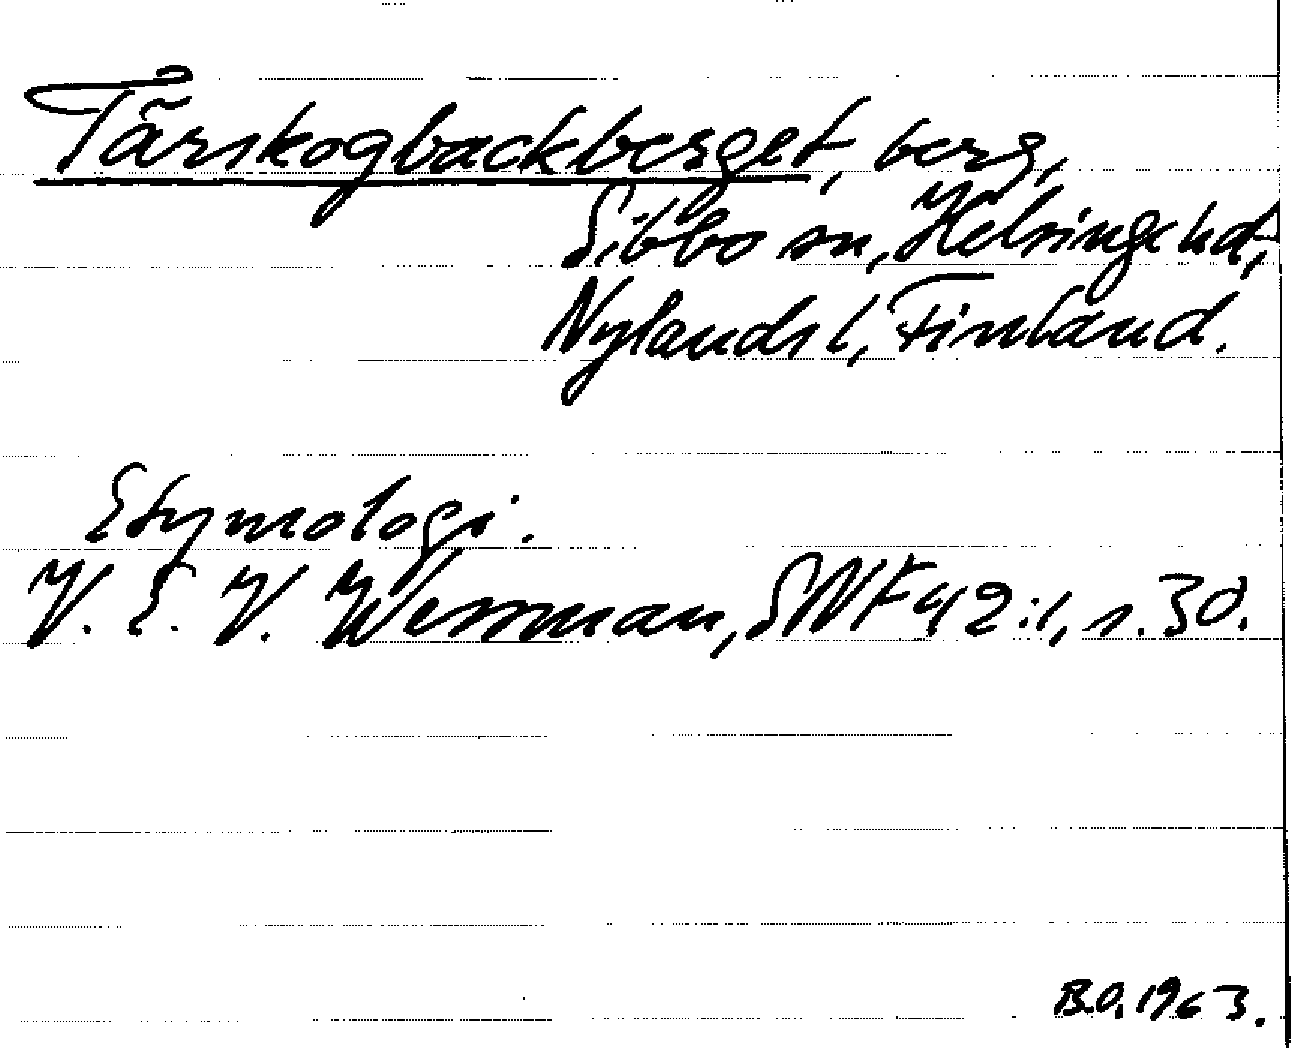 Tärskogbackberget, berg,
Sibbo sn, Helsinge hd,
Nylands l, Finland.
Etymologi.
V. E. V. Wessman, SNF 42:1, s. 30.
B.O. 1963.